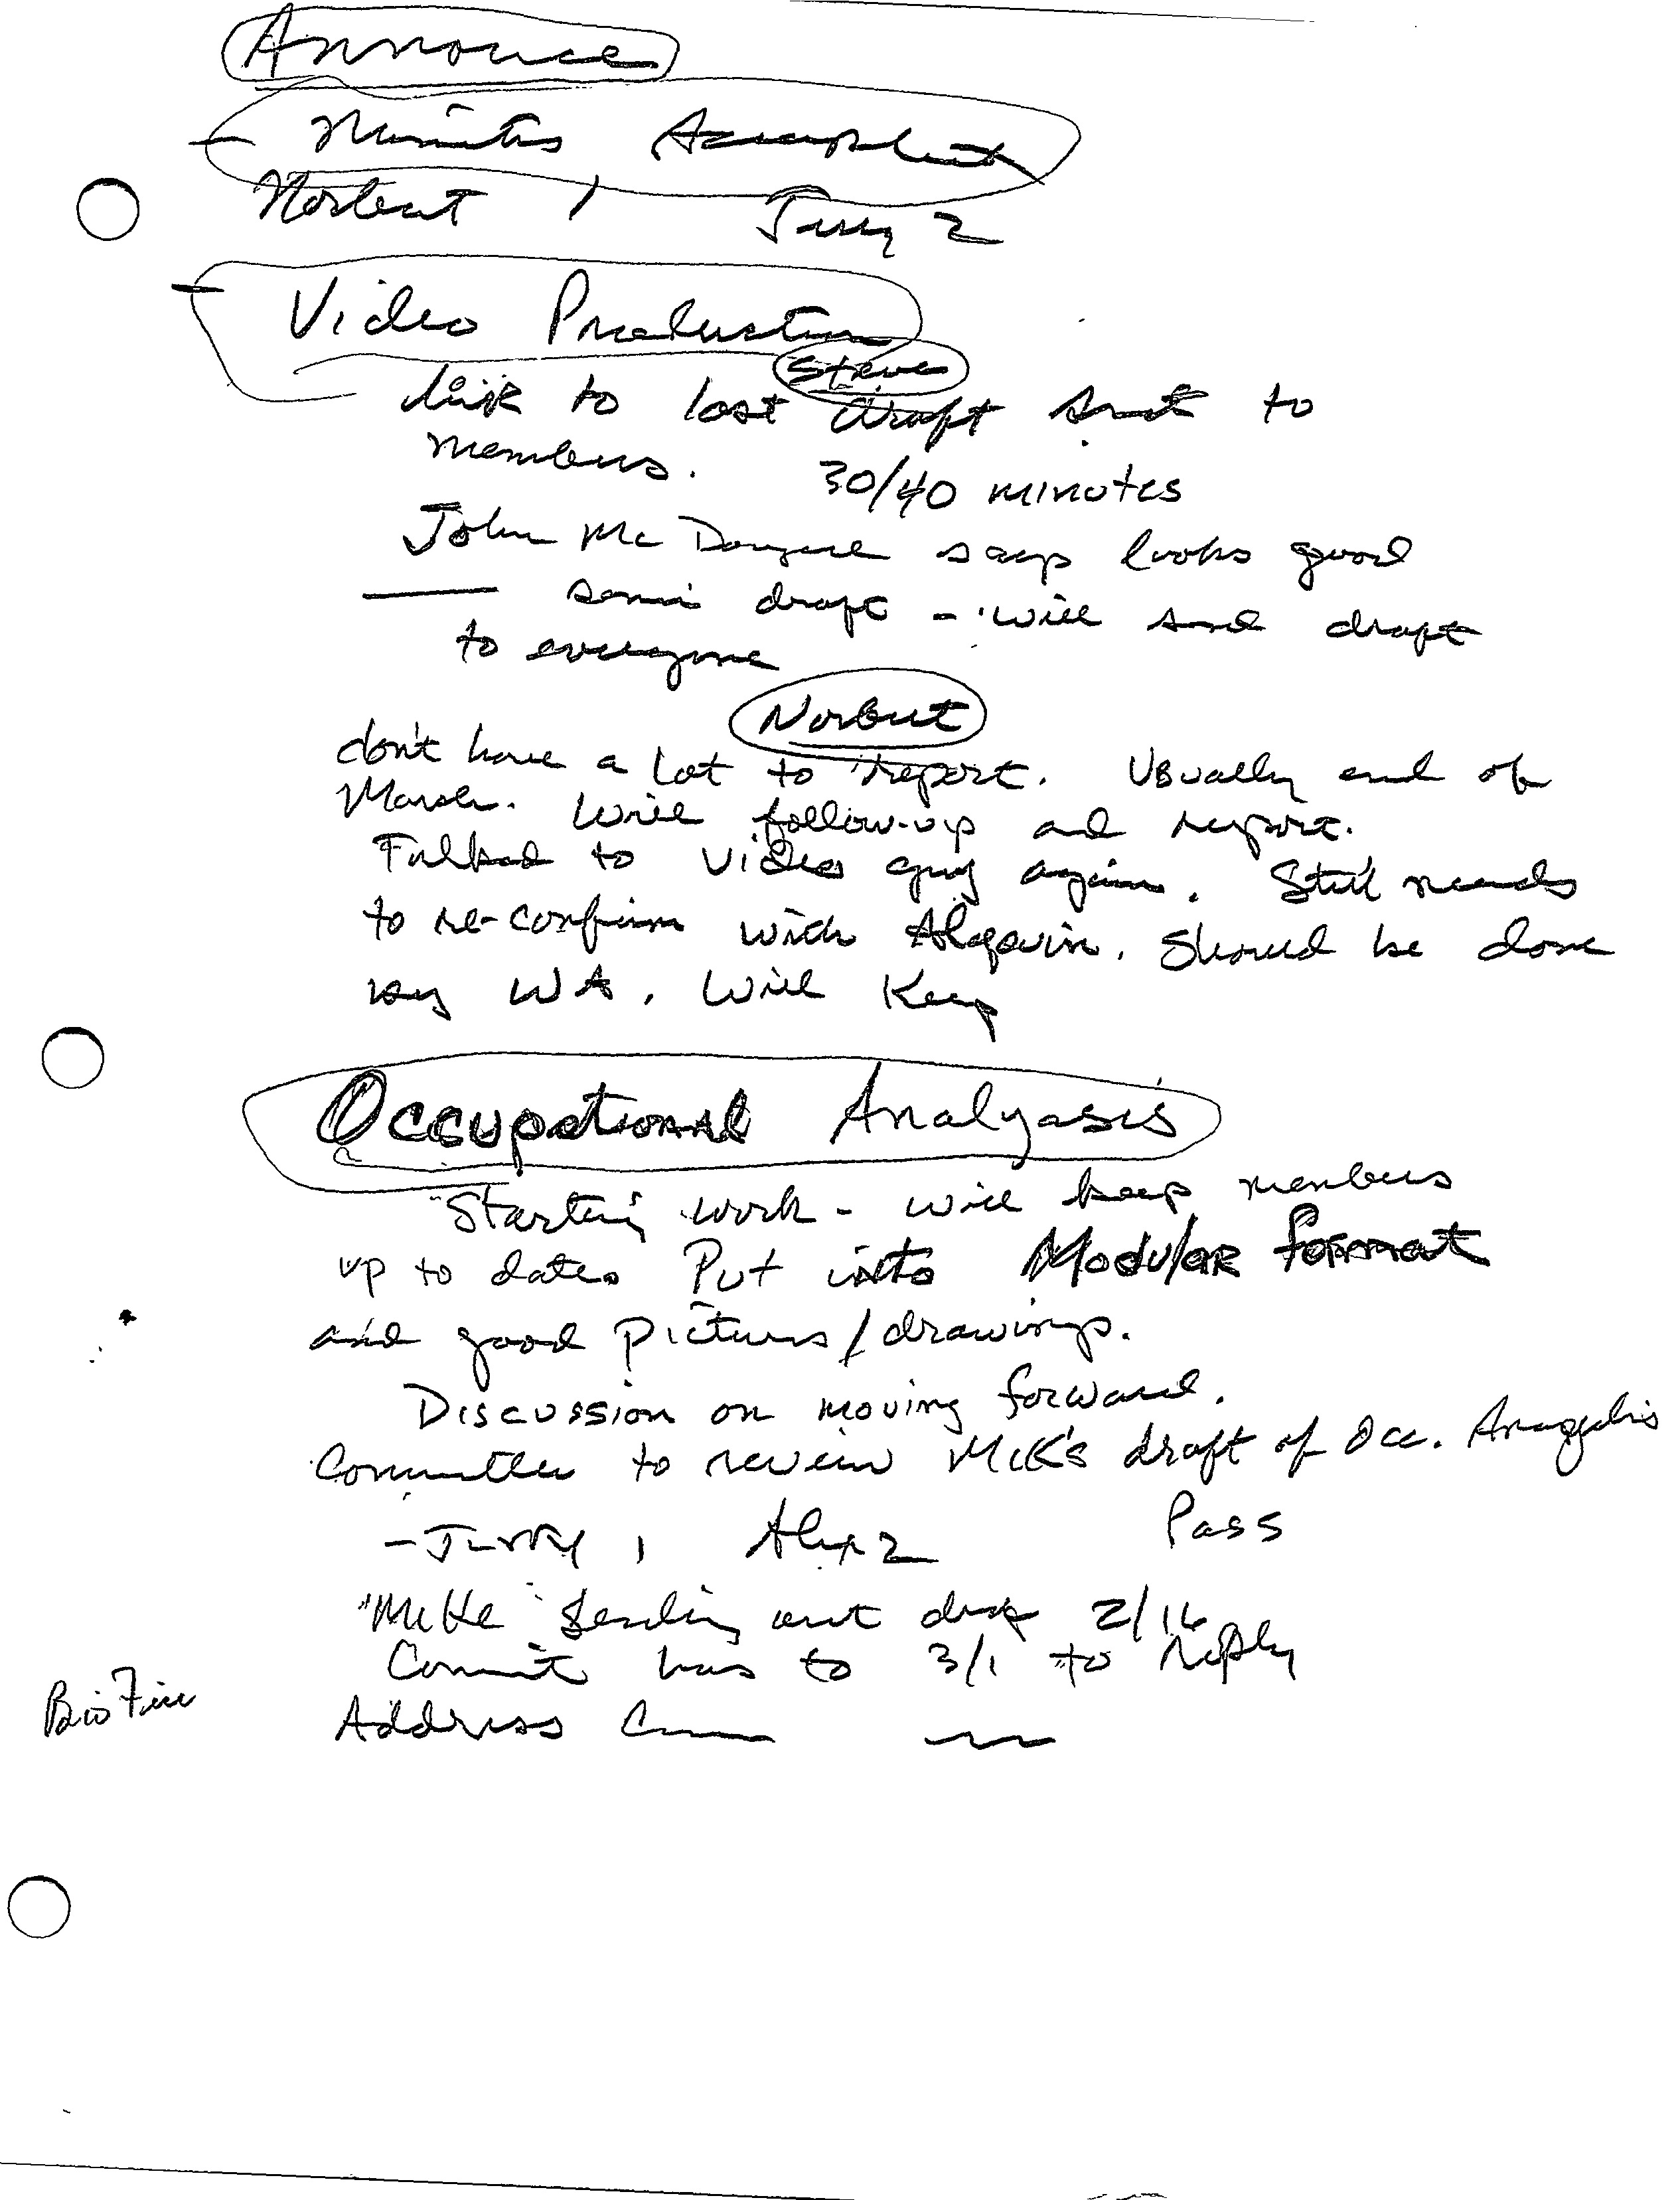 Annouce
- Minutes
Norbert 1 Jerry 2
- Video Production
Steve
Link to last draft sent to
members. 30/40 minutes
John Mc says looks good
— draft - will send draft
to everyone
Norbert
don't have a lot to report. Usually end of
March. Will follow-up and report.
Talked to video guy again. Still needs
to re-confirm with. Should be done
by WA. Will Keep
Occupational Analyasis
Starting work - will keep members
up to date. Put into Modular format
and good pictures/drawings.
Discussion on moving forward.
Committee to review McK's draft of Occ.
- Jerry 1 Alex 2 Pass
Sending out 2/16
has to 3/1 to reply
Address